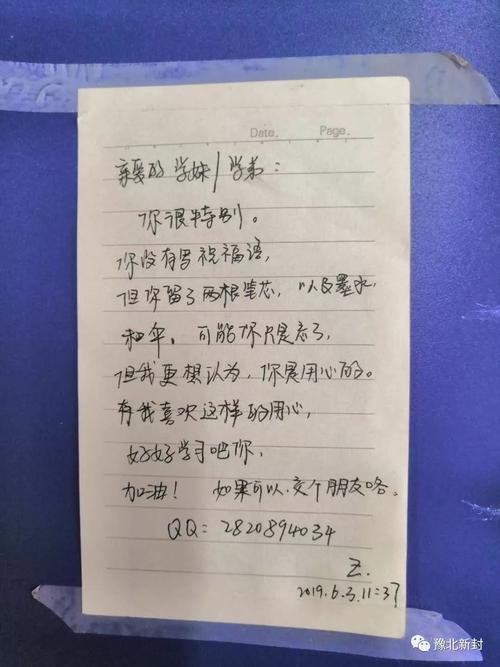 Date. Page.
亲爱的学妹/学弟：
你很特别。
你没有写祝福语，
但你留了两根笔芯，以及墨水，
和伞，可能你只是忘了，
但我更想认为，你是用心的。
有我喜欢这样的用心，
好好学习吧你，
加油！ 如果可以，交个朋友咯。
QQ：2820894034
Z.
2019.6.3.11:37
豫北新封